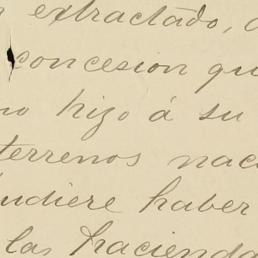 extractado,
concesion qu
no hizo á su
terrenos nac
udiere haber
las hacienda